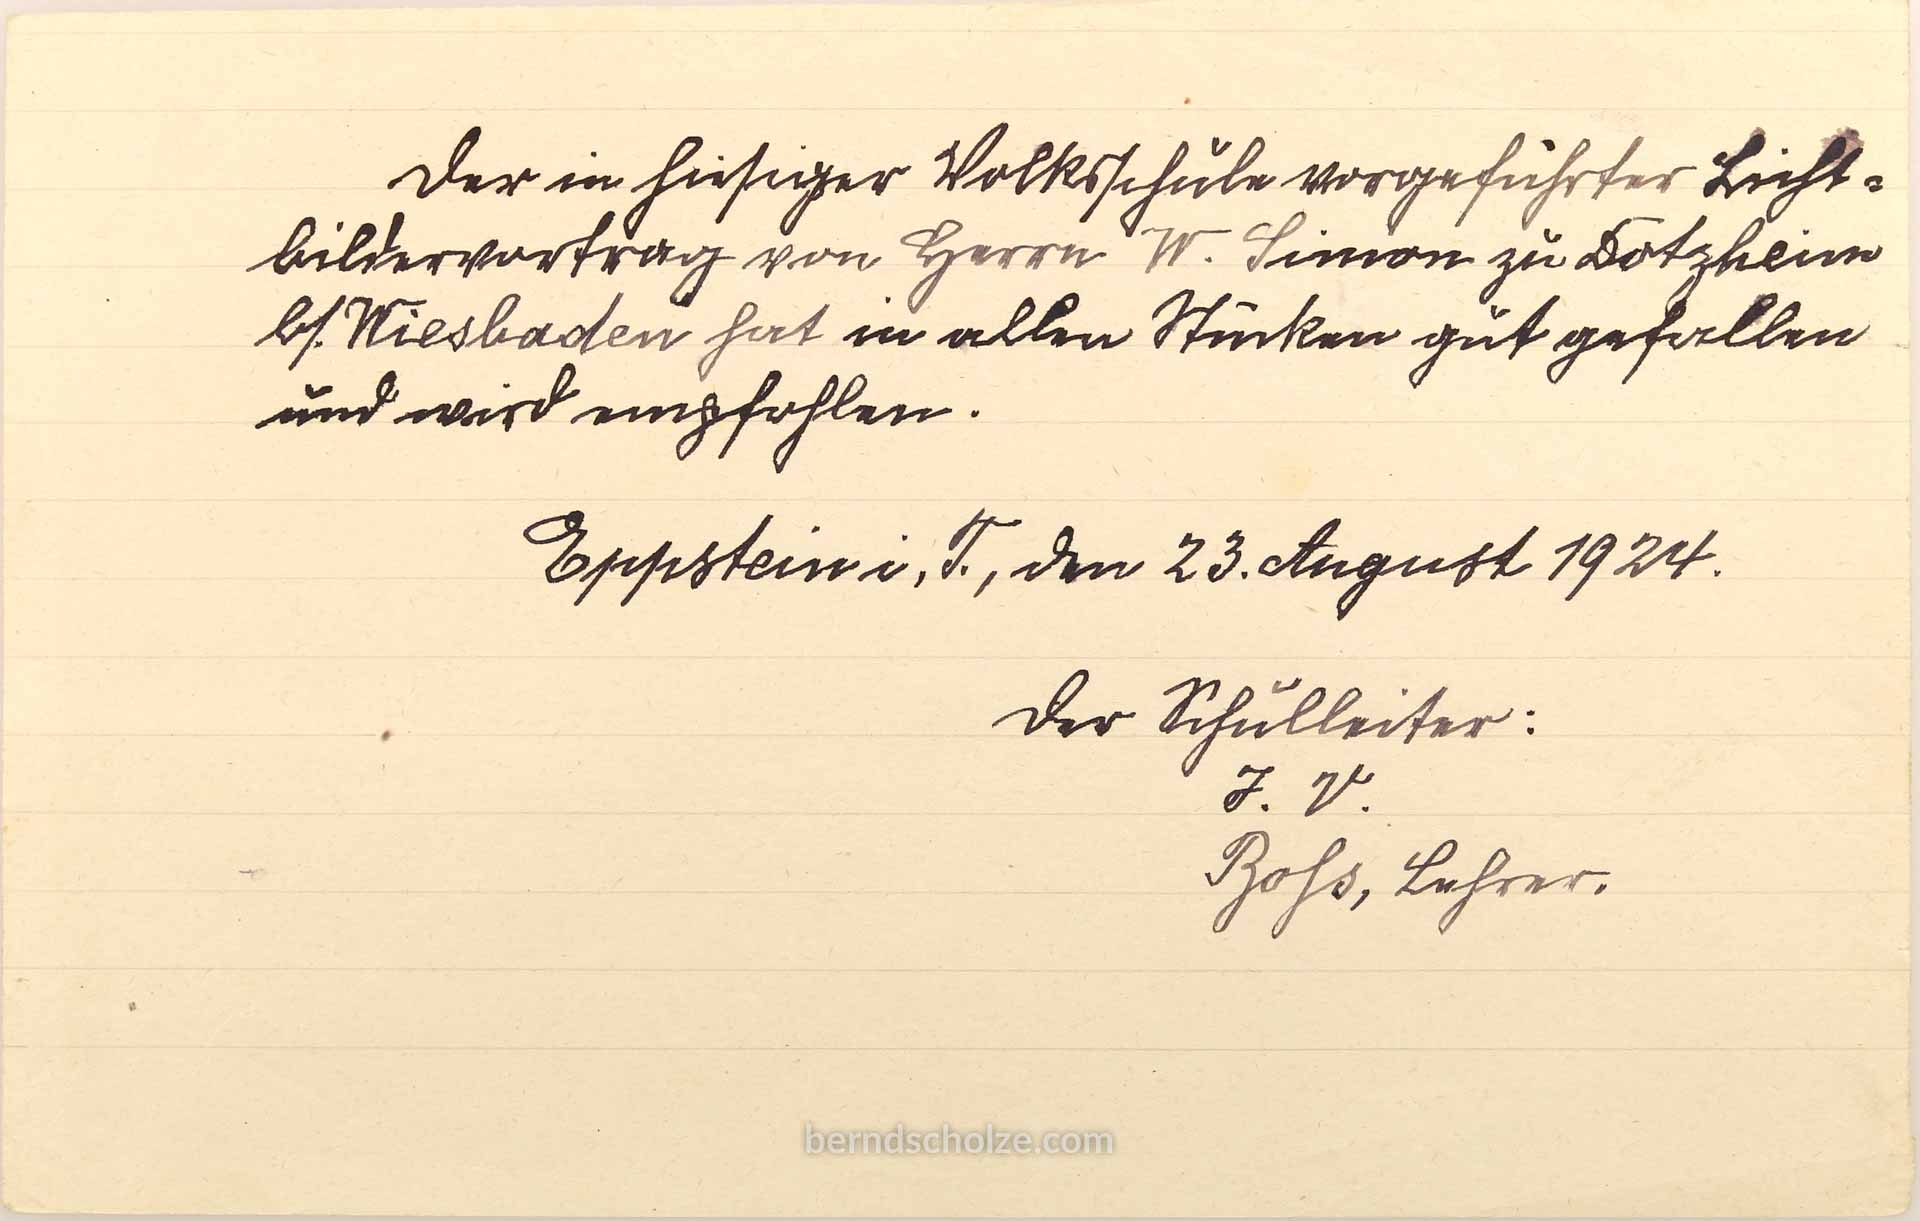 Der in hiesiger Volksschule vorgeführter Licht=
bildervortrag von Herrn W. Simon zu Dotzheim
b/. Wiesbaden hat in allen Stücken gut gefallen
und wird empfohlen.
Eppstein i. T., den 23. August 1924.
Der Schulleiter:
I. V.
Lehrer.
berndscholze.com